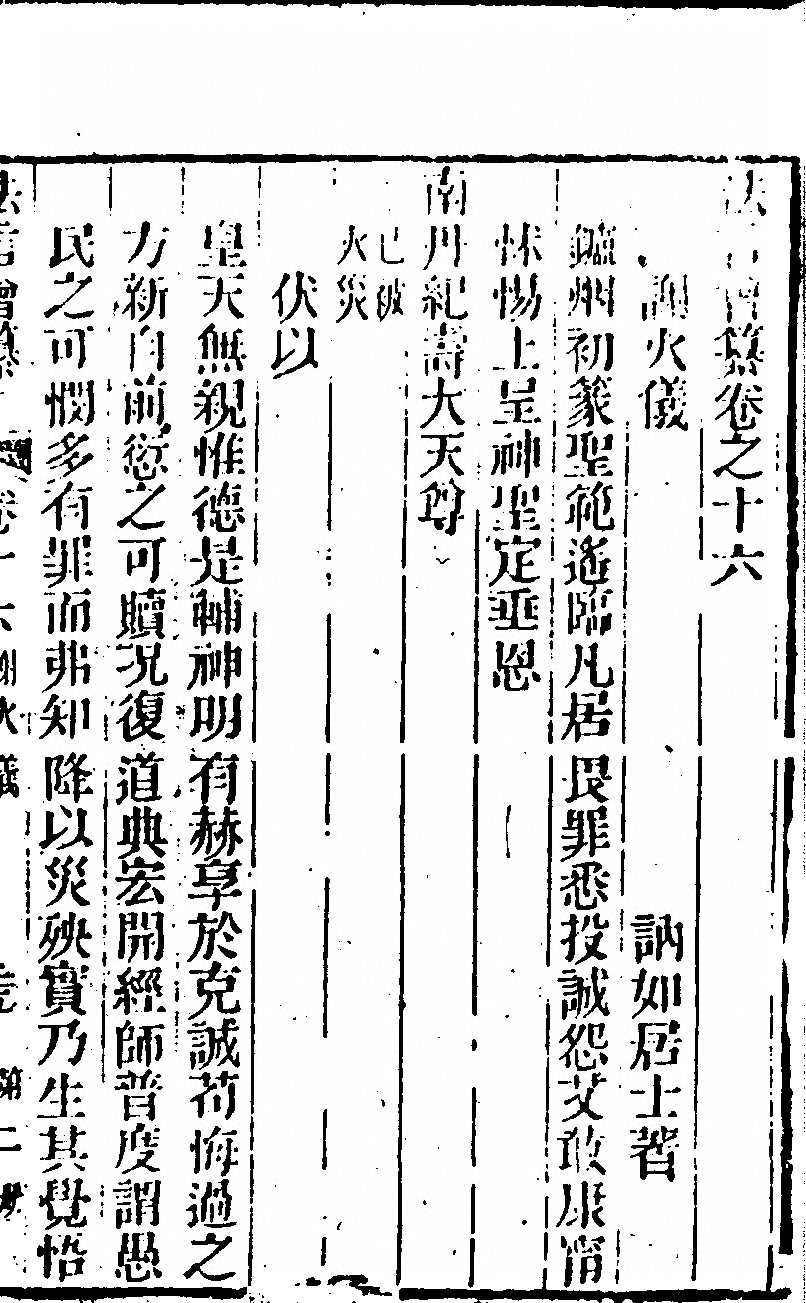 法言會纂卷之十六
謝火儀
訥如居士著
鑪烟初篆聖範遙臨凡居畏罪悉投誠怨艾敢康甯
怵惕上呈神聖定垂恩
南丹紀壽大天尊
已被
火災
伏以
皇天無親惟德是輔神明有赫享於克誠苟悔過之
方新自前愆之可贖况復道典宏開經師普度謂愚
民之可憫多有罪而弗知降以災殃實乃生其覺悟
法言會纂 卷十六謝火儀 壹 第二